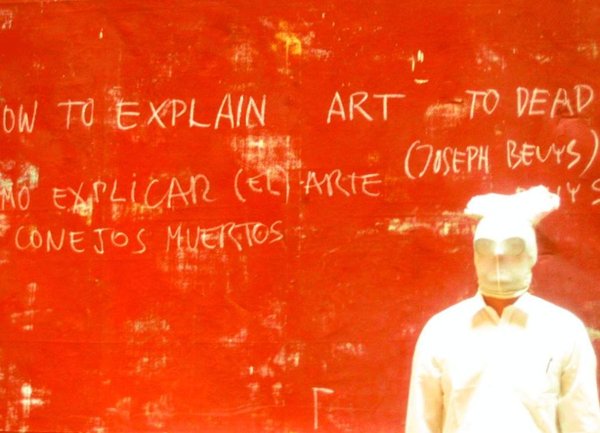 OW TO EXPLAIN ART TO DEAD
(JOSEPH BEUYS)
MO EXPLICAR (EL) ARTE UYS
CONEJOS MUERTOS